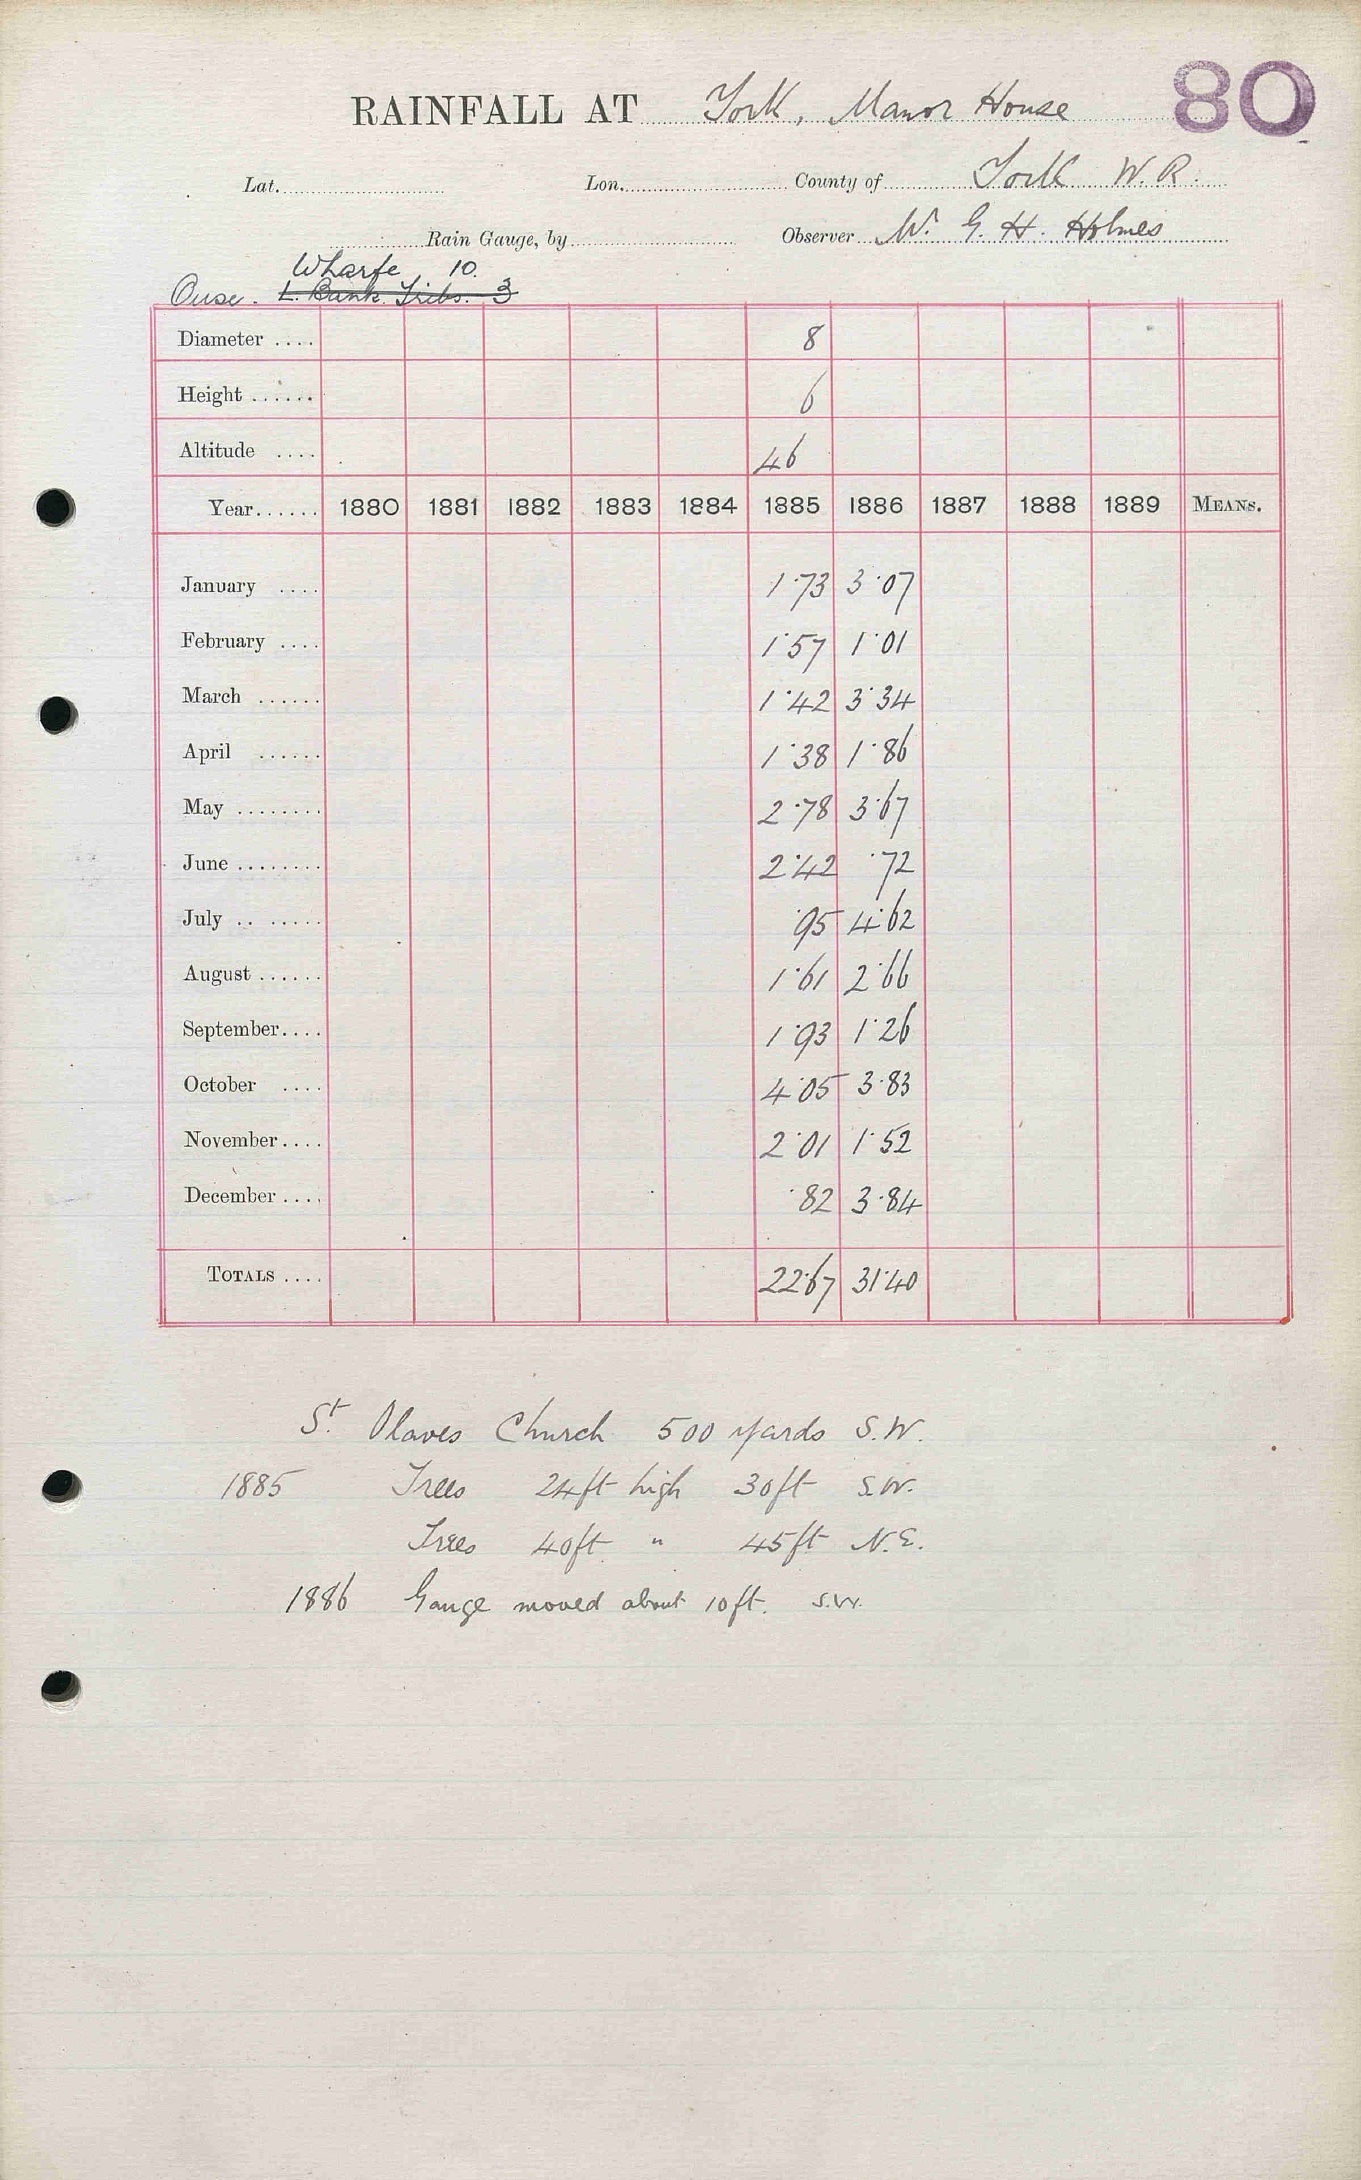 RAINFALL AT York, Manor House 80
Lat. Lon. County of York W.R.
Rain Gauge, by Observer W. G. H. Holmes
Wharfe 10.
Ouse. L. Bank. Tribs. 3
Diameter .... 8
Height ...... 6
Altitude .... 46
Year...... 1880 1881 1882 1883 1884 1885 1886 1887 1888 1889 MEANS.
January .... 1·73 3·07
February .... 1·57 1·01
March ...... 1·42 3·34
April ...... 1·38 1·86
May ........ 2·78 3·67
June ........ 2·42 ·72
July .. ..... ·95 4·62
August ...... 1·61 2·66
September.... 1·93 1·26
October .... 4·05 3·83
November.... 2·01 1·52
December .... ·82 3·84
TOTALS .... 22·67 31·40
St. Olaves Church 500 yards S.W.
1885 Trees 24ft high 30ft S.W.
Trees 40ft " 45ft N.E.
1886 Gauge moved about 10ft. S.W.